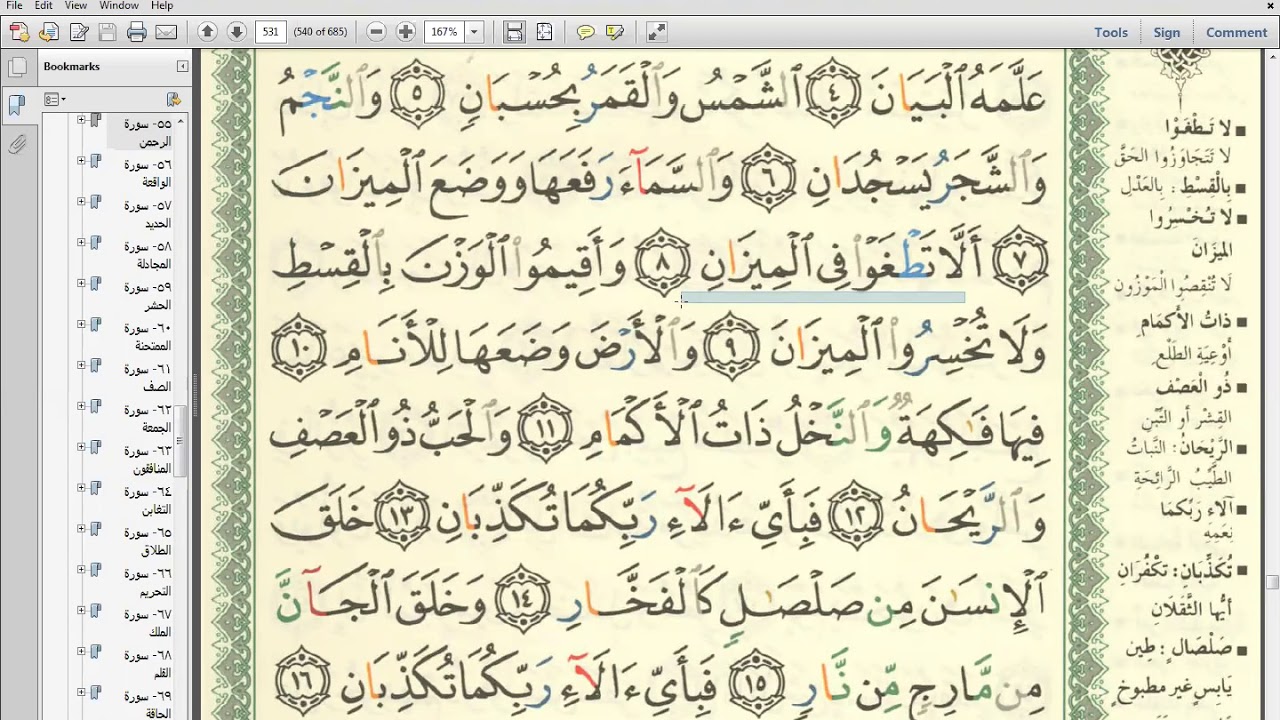 File Edit View Window Help
531 (540 of 685) 167% Tools Sign Comment
Bookmarks
٥٥- سورة
الرحمن
٥٦- سورة
الواقعة
٥٧- سورة
الحديد
٥٨- سورة
المجادلة
٥٩- سورة
الحشر
٦٠- سورة
الممتحنة
٦١- سورة
الصف
٦٢- سورة
الجمعة
٦٣- سورة
المنافقون
٦٤- سورة
التغابن
٦٥- سورة
الطلاق
٦٦- سورة
التحريم
٦٧- سورة
الملك
٦٨- سورة
القلم
٦٩- سورة
الحاقة
عَلَّمَهُ ٱلْبَيَانَ ٤ ٱلشَّمْسُ وَٱلْقَمَرُ بِحُسْبَانٍ ٥ وَٱلنَّجْمُ
وَٱلشَّجَرُ يَسْجُدَانِ ٦ وَٱلسَّمَآءَ رَفَعَهَا وَوَضَعَ ٱلْمِيزَانَ
٧ أَلَّا تَطْغَوْا۟ فِى ٱلْمِيزَانِ ٨ وَأَقِيمُوا۟ ٱلْوَزْنَ بِٱلْقِسْطِ
وَلَا تُخْسِرُوا۟ ٱلْمِيزَانَ ٩ وَٱلْأَرْضَ وَضَعَهَا لِلْأَنَامِ ١٠
فِيهَا فَـٰكِهَةٌ وَٱلنَّخْلُ ذَاتُ ٱلْأَكْمَامِ ١١ وَٱلْحَبُّ ذُو ٱلْعَصْفِ
وَٱلرَّيْحَانُ ١٢ فَبِأَىِّ ءَالَآءِ رَبِّكُمَا تُكَذِّبَانِ ١٣ خَلَقَ
ٱلْإِنسَـٰنَ مِن صَلْصَـٰلٍ كَٱلْفَخَّارِ ١٤ وَخَلَقَ ٱلْجَآنَّ
مِن مَّارِجٍ مِّن نَّارٍ ١٥ فَبِأَىِّ ءَالَآءِ رَبِّكُمَا تُكَذِّبَانِ ١٦
لا تَطْغَوْا
لا تَتَجَاوَزُوا الحَقَّ
بِالْقِسْطِ : بِالعَدْلِ
لا تُخْسِرُوا
المِيزَانَ
لَا تُنْقِصُوا المَوْزُونَ
ذَاتُ الأَكمَامِ
أَوْعِيَةِ الطَّلْعِ
ذُو الْعَصْفِ
القِشْرِ أو التِّبْنِ
الرَّيْحَانُ : النَّبَاتُ
الطَّيِّبُ الرَّائِحَةِ
آلَاءِ رَبِّكُمَا
نِعَمِهِ
تُكَذِّبَانِ : تَكْفُرَانِ
أَيُّهَا الثَّقَلَانِ
صَلْصَالٍ : طِين
يَابِسٍ غَيرِ مطبوخٍ